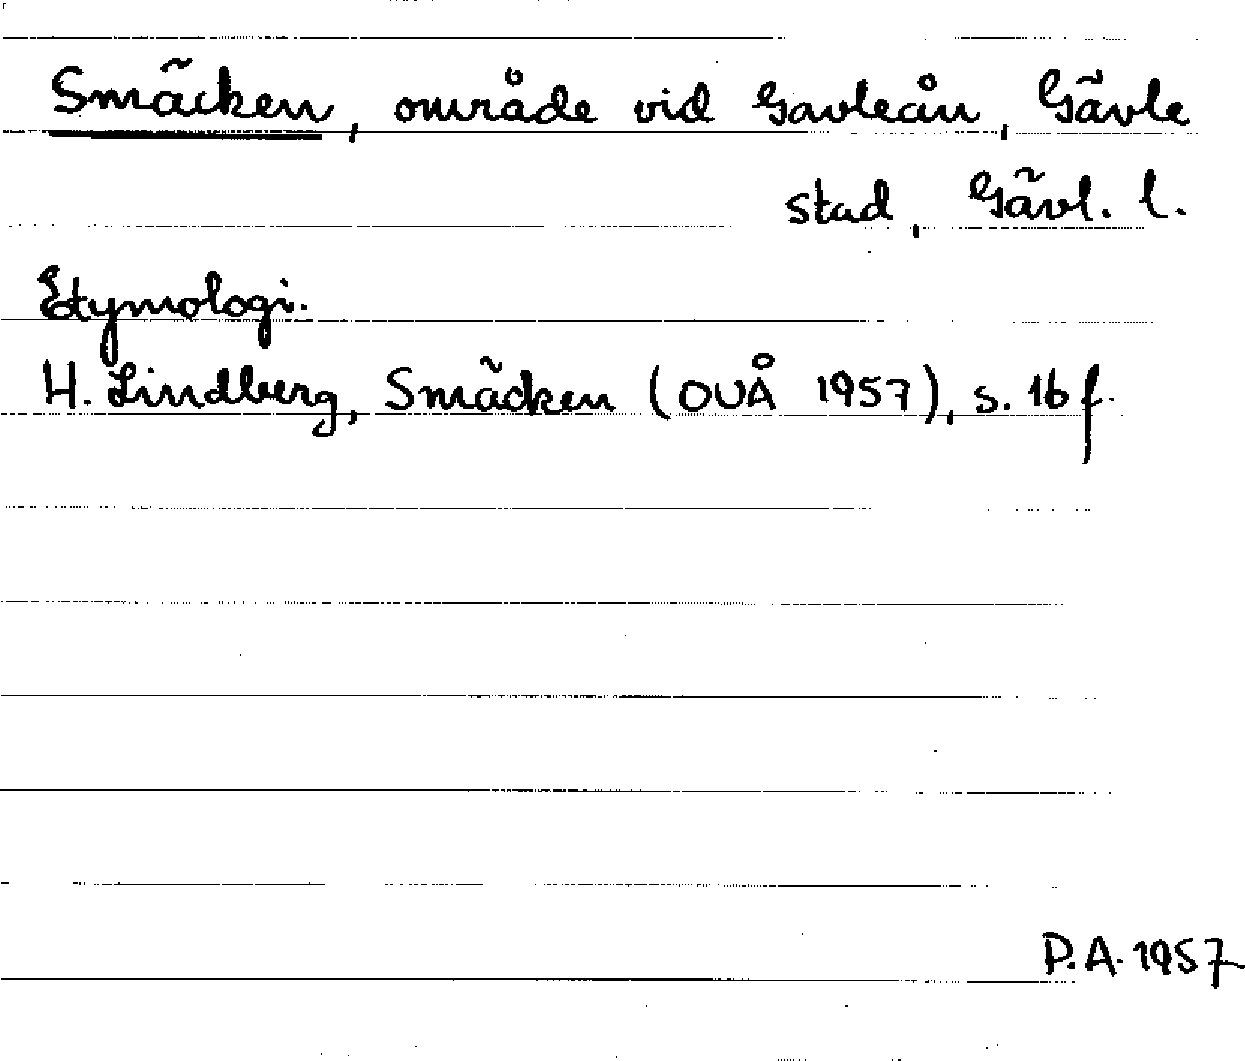 Smäcken, område vid Gavleån, Gävle
stad, Gävl. l.
Etymologi.
H. Lindberg, Smäcken (OUÅ 1957), s. 16 f.
P.A. 1957